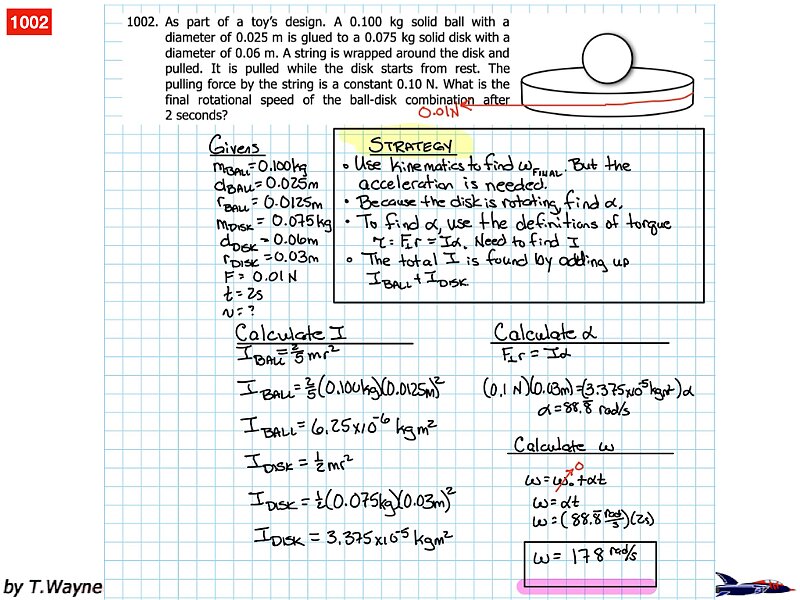 1002
1002. As part of a toy's design. A 0.100 kg solid ball with a
diameter of 0.025 m is glued to a 0.075 kg solid disk with a
diameter of 0.06 m. A string is wrapped around the disk and
pulled. It is pulled while the disk starts from rest. The
pulling force by the string is a constant 0.10 N. What is the
final rotational speed of the ball-disk combination after
2 seconds?
0.01N
Givens
m_BALL = 0.100kg
d_BALL = 0.025m
r_BALL = 0.0125m
m_DISK = 0.075kg
d_DISK = 0.06m
r_DISK = 0.03m
F = 0.01 N
t = 2s
v = ?
STRATEGY
• Use kinematics to find ω_FINAL. But the
acceleration is needed.
• Because the disk is rotating, find α.
• To find α, use the definitions of torque
τ = F⊥r = Iα. Need to find I
• The total I is found by adding up
I_BALL + I_DISK
Calculate I
I_BALL = 2/5 mr²
I_BALL = 2/5 (0.100kg)(0.0125m)²
I_BALL = 6.25x10⁻⁶ kgm²
I_DISK = 1/2 mr²
I_DISK = 1/2 (0.075kg)(0.03m)²
I_DISK = 3.375x10⁻⁵ kgm²
Calculate α
F⊥r = Iα
(0.1 N)(0.03m) = (3.375x10⁻⁵ kgm²)α
α = 88.8̄ rad/s
Calculate ω
0
ω = ω₀ + αt
ω = αt
ω = (88.8̄ rad/s)(2s)
ω = 178 rad/s
by T.Wayne